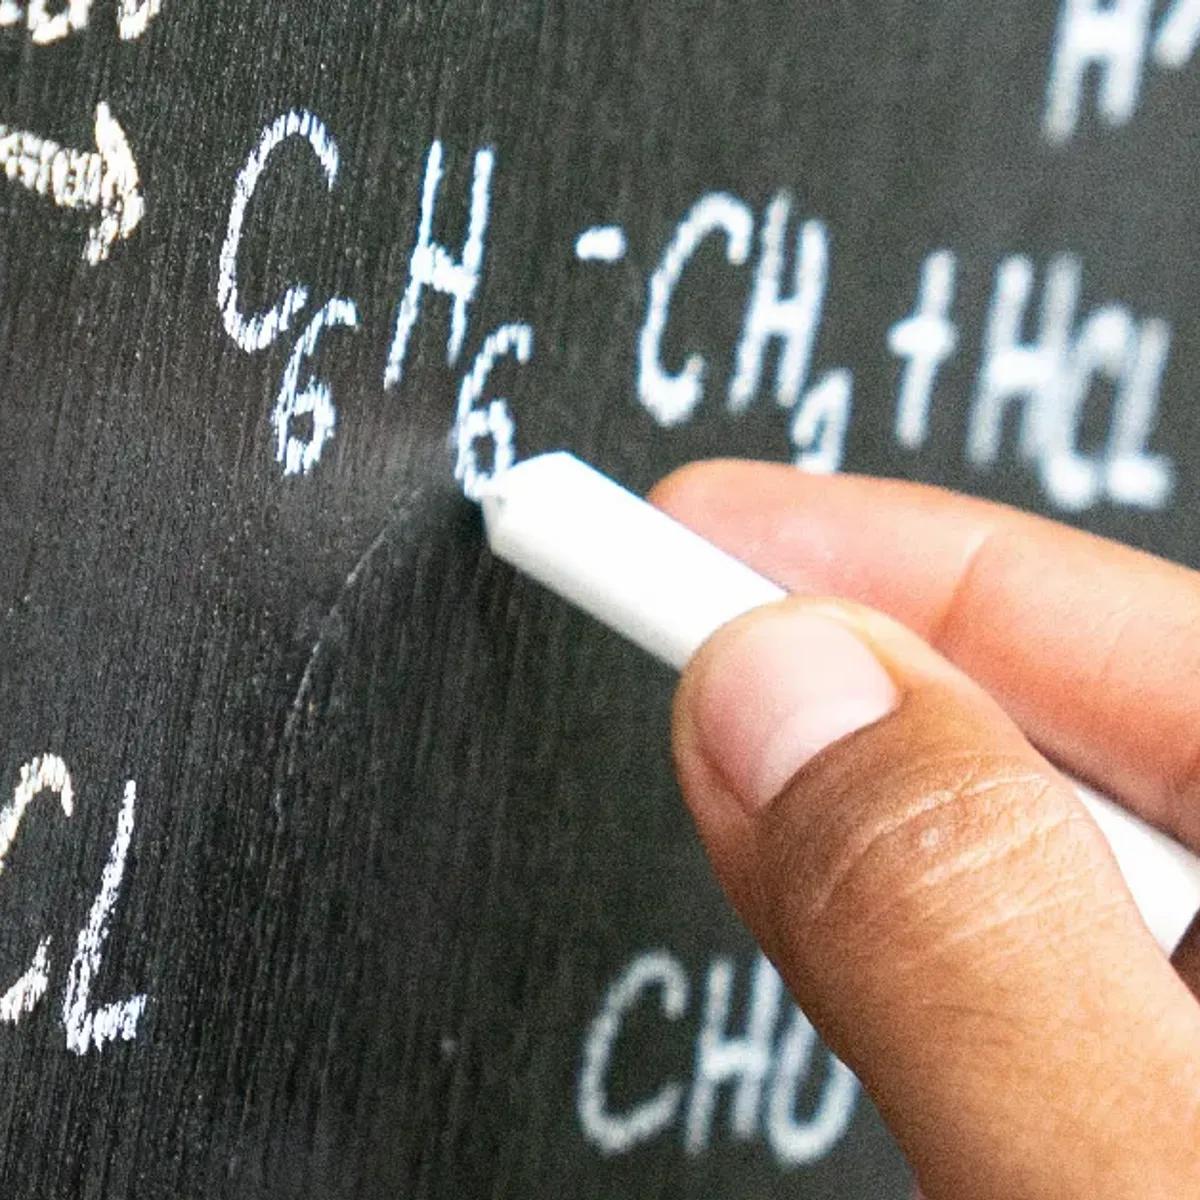 → C₆H₆-CH₂ + HCL
CL
CHO